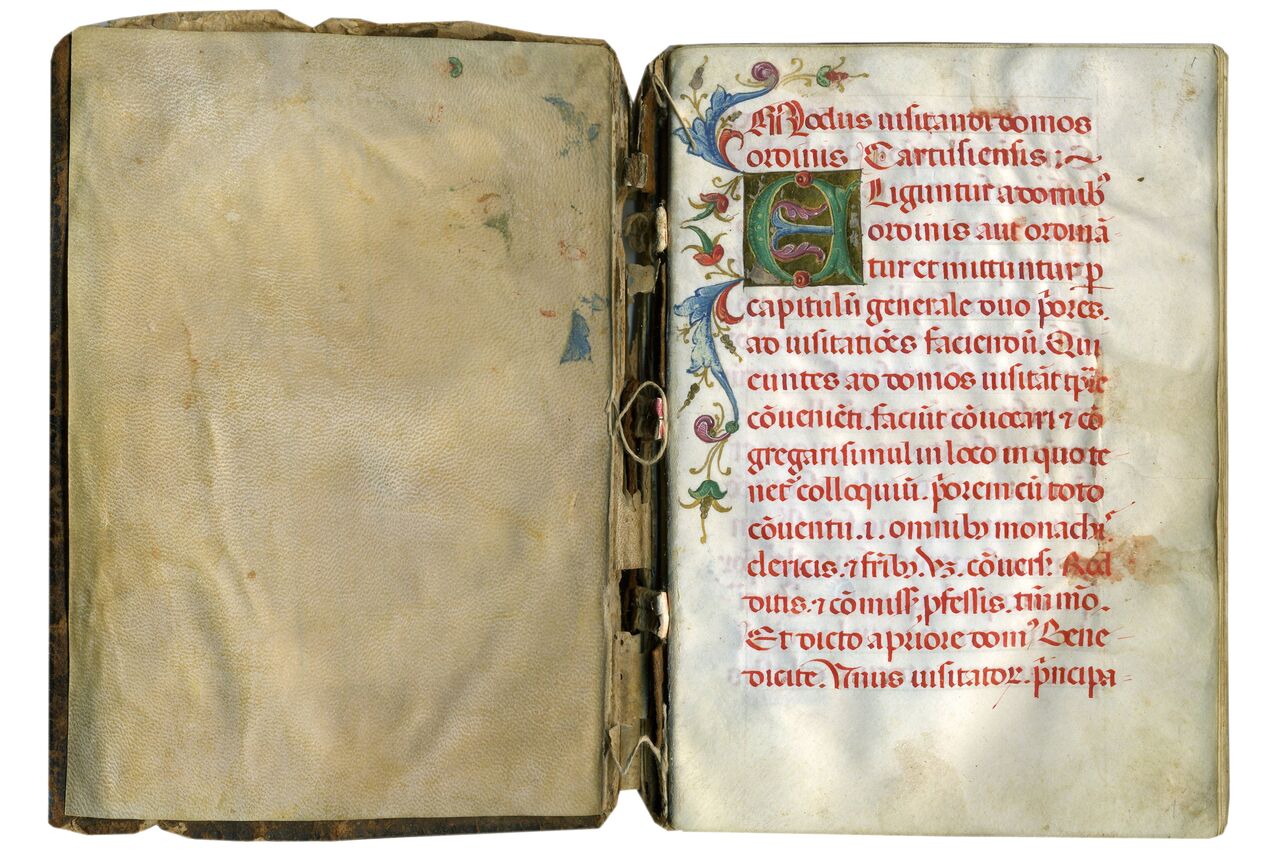 Modus uisitandi domos
ordinis Cartusiensis :~
ELiguntur a domibꝰ
ordinis aut ordinā
tur et mittuntur ꝑ
capitulū generale duo p̄ores.
ad uisitatiōes faciendū. Qui
euntes ad domos uisitāt
cōueniēti. faciūt cōuocari ⁊ cō
gregari simul in loco in quo te
netʳ colloquiū. p̄orem cū toto
cōuentu .i. omnibꝫ monachiˢ
clericis. ⁊ frībꝫ. Vꝫ. cōuersꝭ. Red
ditis. ⁊ cōmissꝭ pfessis. tm̄mō.
Et dicto a priore domꝰ Bene
dicite. Vnus uisitatoꝝ. p̄ncipa